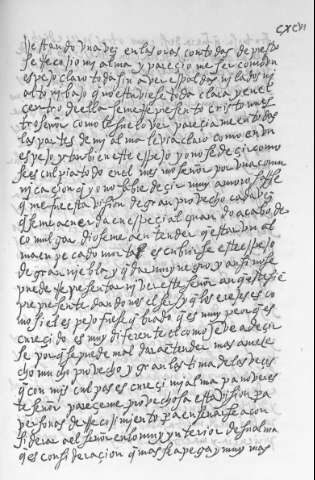 cxcvi
estando una vez en las oras con todas de presto
se recojio mi alma y pareciome ser como un
espejo claro toda sin aver espaldas ni lados ni
alto ni bajo q no estuviese toda clara y en el
centro de ella se me representó cristo nuestro
señor como le suelo ver pareciame en todas
las partes de mi alma le via claro como en un
espejo y tanbien este espejo yo no se decir como
se esculpia todo en el mesmo señor por una comu
nicacion q yo no sabre decir muy amorosa se q
me fue esta vision de gran provecho cada vez
q se me acuerda en especial quando acabo de
comulgar dioseme a entender q estar un al
ma en pecado mortal es cubrirse este espejo
de gran niebla y quedar muy negro y ansi no se
puede representar ni ver este señor aunq este sienpre
presente dandonos el ser y q los erejes es co
mo si el espejo fuese quebrado q es muy peor q es
curecido es muy diferente el como se ve a decir
se porq se puede mal dar a entender mas ame
hecho mucho provecho y gran lastima de las veces
q con mis culpas escureci mi alma pa no ver es
te señor pareceme provechosa esta vision pa
personas de recojimiento pa enseñarse a con
siderar al señor en lo muy ynterior de su alma
q es consideracion q mas se apega y muy mas